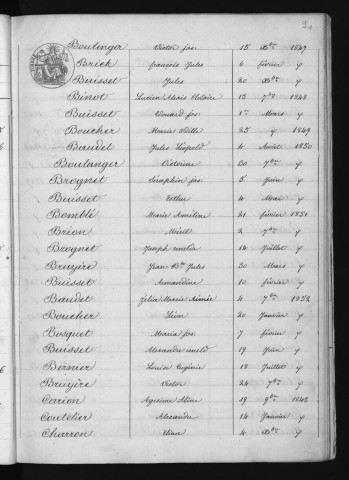 Boulenger Victor jos 15 Xbre 1847
Brick françois Jules 6 février y
Buisset Jules 20 Xbre y
Binot Lucien Alexis 15 7bre 1848
Buisset Edouard jos 1er Mars y
Boucher Marie Odille 25 y 1849
Baudet Jules Léopold 4 Août 1850
Boulanger Victorine 30 7bre y
Brognet Séraphin jos 5 Juin y
Buisset Esther 4 Mai y
Bomblé Marie Améline 21 février 1851
Brion 2 7bre y
Brognet Joseph 14 Juillet y
Bruyère Jean Bte Jules 30 Mars y
Buisset Amandine 10 février y
Baudet Zélia Marie Aimée 4 7bre 1852
Boucher Léon 20 Janvier y
Bosquet Maria jos 7 février y
Buisset Alexandre 19 Juin y
Bernier Louise Eugénie 18 Juillet y
Bruyère Victor 24 7bre y
Carion Aline 19 9bre 1842
Coutelier Alexandre 14 Janvier y
Charron Elina 4 Xbre y